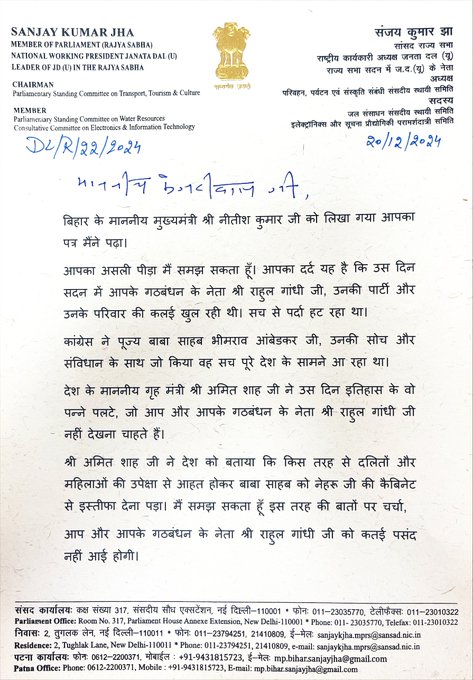 SANJAY KUMAR JHA
MEMBER OF PARLIAMENT (RAJYA SABHA)
NATIONAL WORKING PRESIDENT JANATA DAL (U)
LEADER OF JD (U) IN THE RAJYA SABHA
CHAIRMAN
Parliamentary Standing Committee on Transport, Tourism & Culture
MEMBER
Parliamentary Standing Committee on Water Resources
Consultative Committee on Electronics & Information Technology
DL/R/22/2024
सत्यमेव जयते
संजय कुमार झा
सांसद राज्य सभा
राष्ट्रीय कार्यकारी अध्यक्ष जनता दल (यू)
राज्य सभा सदन में ज.द.(यू) के नेता
अध्यक्ष
परिवहन, पर्यटन एवं संस्कृति संबंधी संसदीय स्थायी समिति
सदस्य
जल संसाधन संसदीय स्थायी समिति
इलेक्ट्रॉनिक्स और सूचना प्रौद्योगिकी परामर्शदात्री समिति
20/12/2024
माननीय केजरीवाल जी,
बिहार के माननीय मुख्यमंत्री श्री नीतीश कुमार जी को लिखा गया आपका
पत्र मैंने पढ़ा।
आपका असली पीड़ा मैं समझ सकता हूँ। आपका दर्द यह है कि उस दिन
सदन में आपके गठबंधन के नेता श्री राहुल गांधी जी, उनकी पार्टी और
उनके परिवार की कलई खुल रही थी। सच से पर्दा हट रहा था।
कांग्रेस ने पूज्य बाबा साहब भीमराव आंबेडकर जी, उनकी सोच और
संविधान के साथ जो किया वह सच पूरे देश के सामने आ रहा था।
देश के माननीय गृह मंत्री श्री अमित शाह जी ने उस दिन इतिहास के वो
पन्ने पलटे, जो आप और आपके गठबंधन के नेता श्री राहुल गांधी जी
नहीं देखना चाहते हैं।
श्री अमित शाह जी ने देश को बताया कि किस तरह से दलितों और
महिलाओं की उपेक्षा से आहत होकर बाबा साहब को नेहरू जी की कैबिनेट
से इस्तीफा देना पड़ा। मैं समझ सकता हूँ इस तरह की बातों पर चर्चा,
आप और आपके गठबंधन के नेता श्री राहुल गांधी जी को कतई पसंद
नहीं आई होगी।
संसद कार्यालयः कक्ष संख्या 317, संसदीय सौध एक्सटेंशन, नई दिल्ली-110001 • फोनः 011-23035770, टेलीफैक्सः 011-23010322
Parliament Office: Room No. 317, Parliament House Annexe Extension, New Delhi-110001 * Phone: 011- 23035770, Telefax: 011-23010322
निवासः 2, तुगलक लेन, नई दिल्ली-110011 • फोनः 011-23794251, 21410809, ई-मेलः sanjaykjha.mprs@sansad.nic.in
Residence: 2, Tughlak Lane, New Delhi-110011 * Phone: 011-23794251, 21410809, e-mail: sanjaykjha.mprs@sansad.nic.in
पटना कार्यालयः फोनः 0612-2200371, मोबाईल : +91-9431815723, ई-मेलः mp.bihar.sanjayjha@gmail.com
Patna Office: Phone: 0612-2200371, Mobile : +91-9431815723, E-mail: mp.bihar.sanjayjha@gmail.com